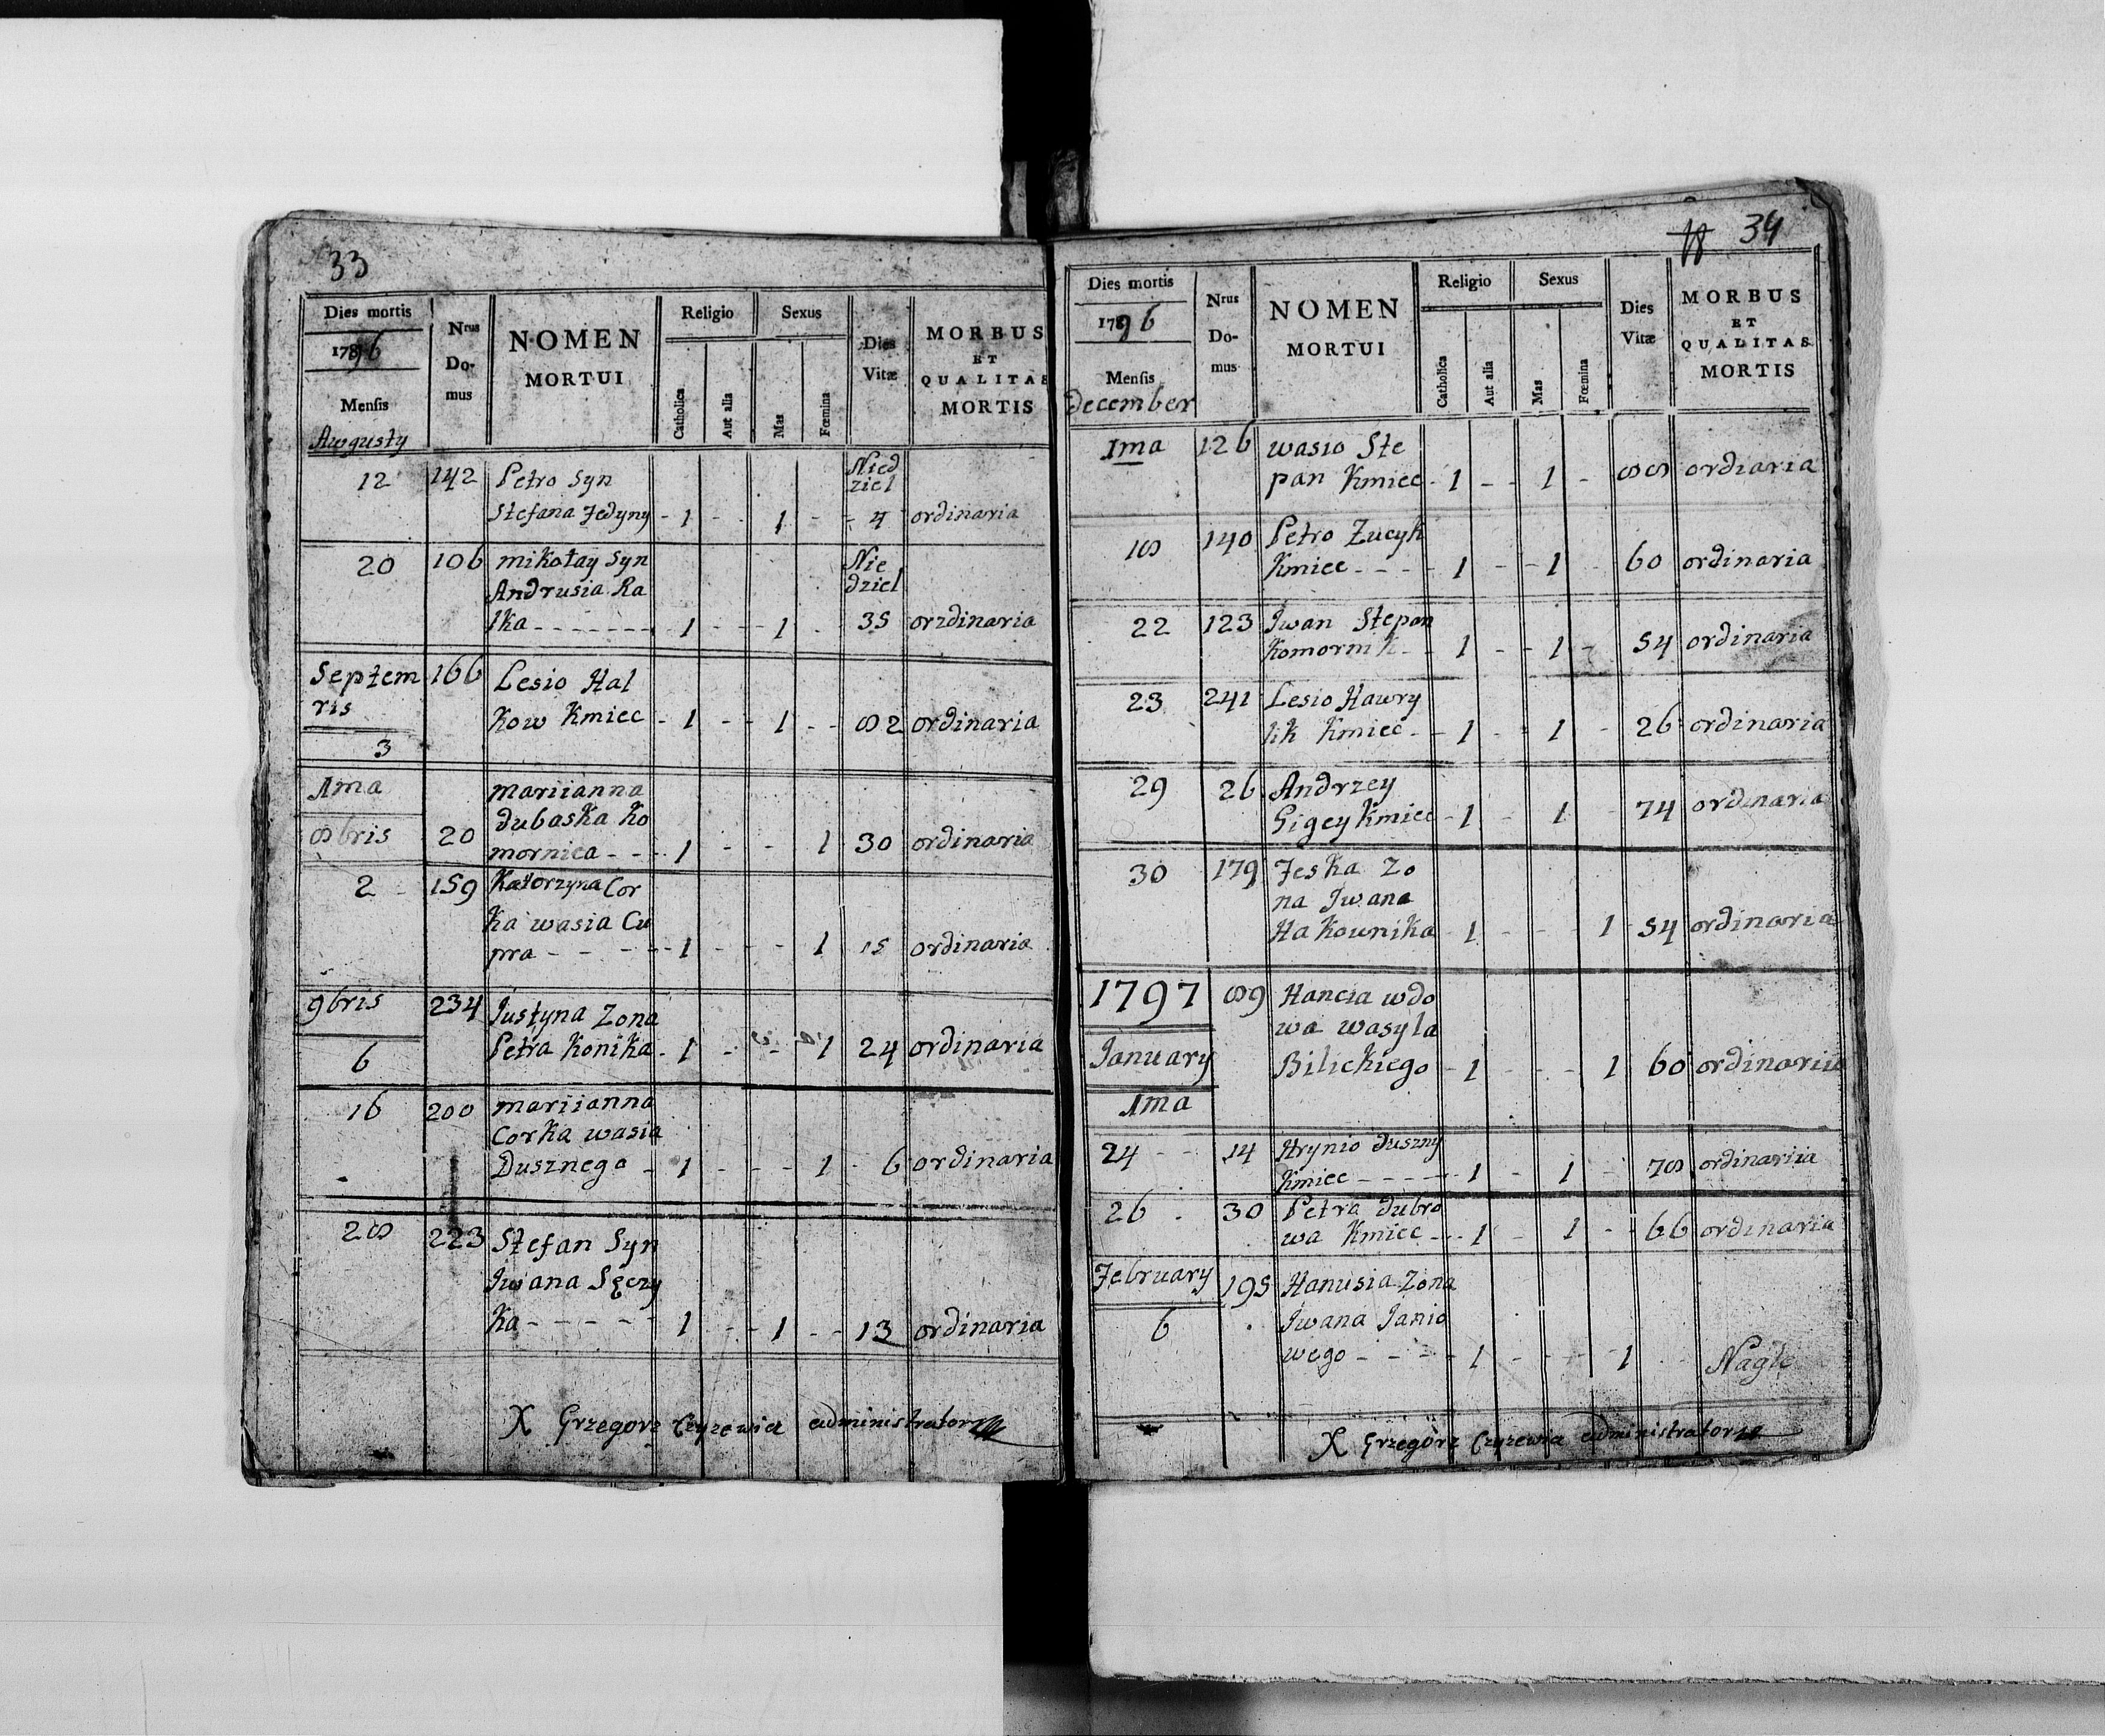 33
Dies mortis
1796
Mensis
Awgusty
Nrus
Do-
mus
NOMEN
MORTUI
Religio
Catholica
Aut alia
Sexus
Mas
Fœmina
Dies
Vitæ
MORBUS
ET
QUALITAS
MORTIS
12 142 Petro Syn Nied
ziel
Stefana Jedyny - 1 - - 1 - - 4 ordinaria
20 106 mikołay Syn Nie
Andrusia Ra dziel
lka - - - - - - - 1 - - 1 - 35 orzdinaria
Septem 166 Lesio Hal
ris Kow Kmiec - 1 - - 1 - - 82 ordinaria
3
1ma mariianna
dubaska Ko
8bris 20 mornica - - - 1 - - 1 30 ordinaria
2 159 Katorzyna Cor
ka wasia Cu
pra - - - - - 1 - - - 1 15 ordinaria
9bris 234 Justyna Zona
6 Petra Konika - 1 - - 1 24 ordinaria
16 200 mariianna
Corka wasia
Dusznego - 1 - - - 1 - 6 ordinaria
28 223 Stefan Syn
Iwana Sęczy
Ka - - - - - 1 - - 1 - - 13 ordinaria
X Grzegorz Czyzewicz administrator
34
Dies mortis
1796
Mensis
December
Nrus
Do-
mus
NOMEN
MORTUI
Religio
Catholica
Aut alia
Sexus
Mas
Fœmina
Dies
Vitæ
MORBUS
ET
QUALITAS
MORTIS
1ma 126 wasio Ste
pan Kmiec - 1 - - 1 - 88 ordiaria
18 140 Petro Zucyk
Kmiec - - - - 1 - - 1 - 60 ordinaria
22 123 Iwan Stepan
Komornik - - 1 - - 1 - 54 ordinaria
23 241 Lesio Hawry
lik Kmiec - - 1 - - 1 - 26 ordinaria
29 26 Andrzey
Gigey Kmiec - 1 - 1 - 74 ordinaria
30 179 Jeska Zo
na Iwana
Hakownika - 1 - - - 1 - 54 ordinaria
1797 89 Hancia wdo
wa wasyla
January Bilickiego - 1 - - - 1 60 ordinariia
1ma
24 - - 14 Hrynio duszny
Kmiec - - - - - 1 - 1 - 78 ordinariia
26 - 30 Petra dubro
wa Kmiec - - - 1 - 1 - - 66 ordinaria
February 195 Hanusia Zona
6 Iwana Janio
wego - - - - 1 - - - 1 Nagle
X Grzegorz Czyzewicz administrator